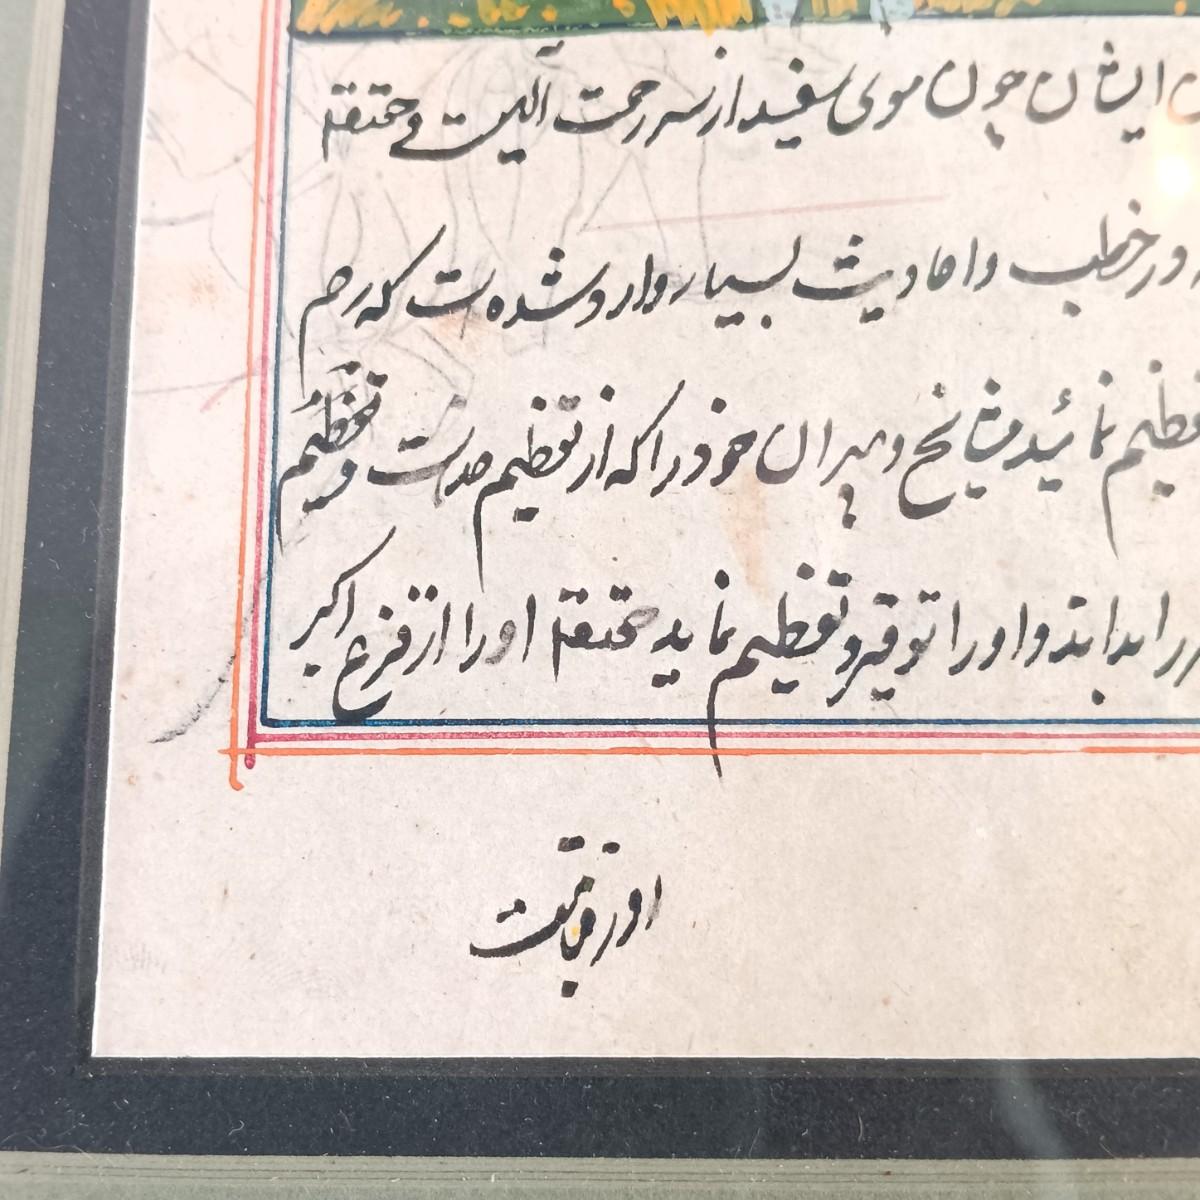 ایشان چون موی سفید از سر رحمت الهیست و حقتعالی
و در خطب و احادیث بسیار وارد شده است که رحم
تعظیم نمائید مشایخ و پیران خود را که از تعظیم خداست و تعظیم
را بداند و او را توقیر و تعظیم نماید حقتعالی او را از فزع اکبر
او